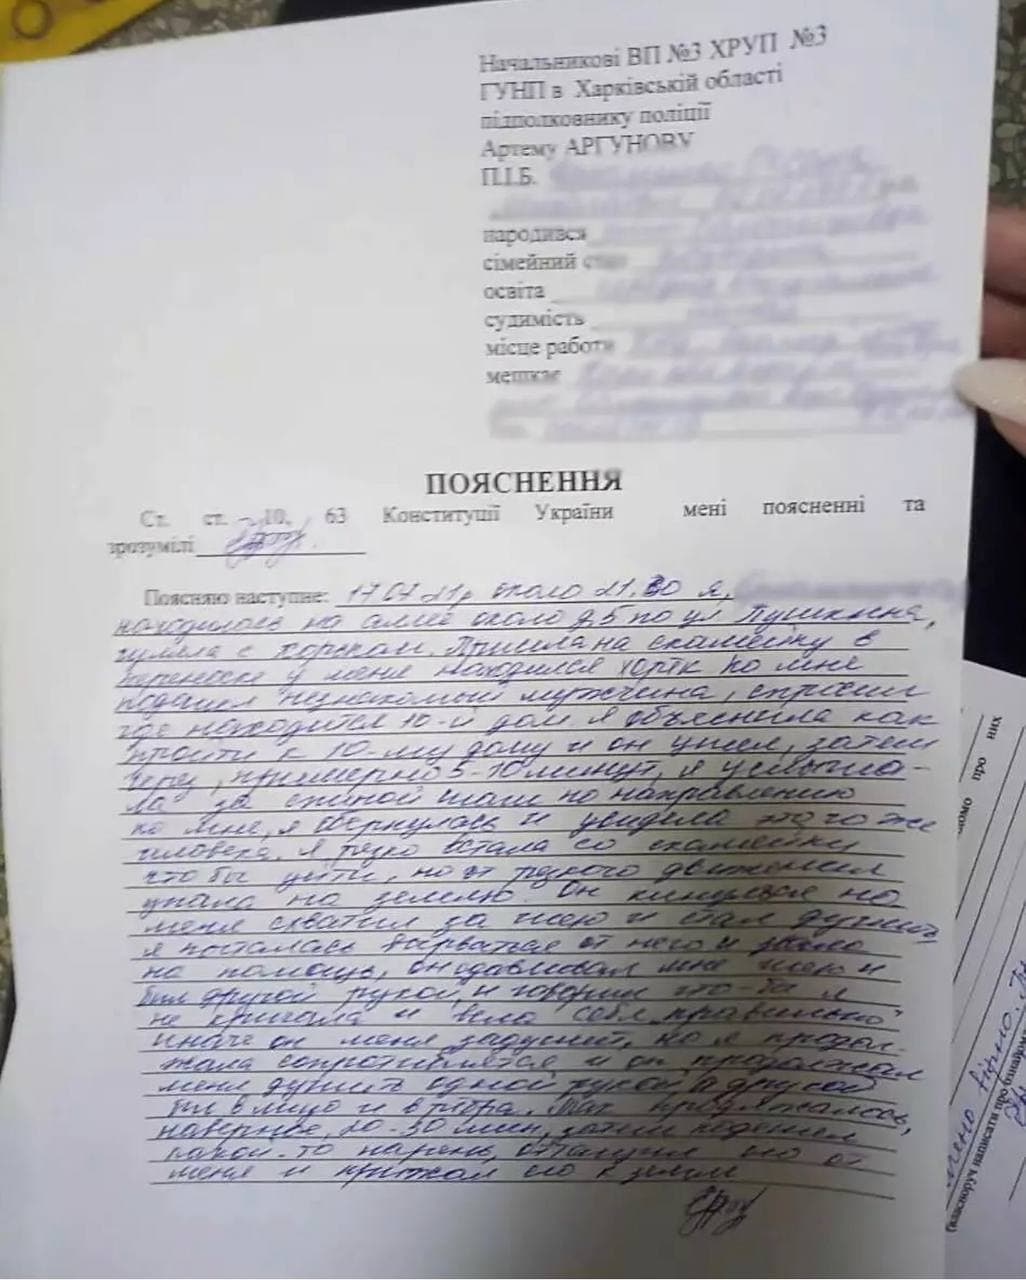 Начальникові ВП №3 ХРУП №3
ГУНП в Харківській області
підполковнику поліції
Артему АРГУНОВУ
П.І.Б.
народився
сімейний стан
освіта
судимість
місце роботи
мешкає
ПОЯСНЕННЯ
Ст. ст. 10, 63 Конституції України мені поясненні та
зрозумілі
Поясняю наступне: 17.07.21р около 21.30 я,
находилась на аллее около д 5 по ул Пушкина,
гуляла с хорьком. Пришла на скамейку в
переноске у меня находился хорёк ко мне
подошел незнакомый мужчина, спросил
где находится 10-й дом. я объяснила как
пройти к 10-му дому и он ушел, затем
через, примерно 5-10 минут, я услыша-
ла за спиной шаги по направлению
ко мне, я обернулась и увидела этого же
человека, я резко встала со скамейки
что бы уйти, но от резкого движения
упала на землю. Он кинулся на
меня схватил за шею и стал душить
я пыталась вырваться от него и звала
на помощь, он сдавливал мне шею и
бил другой рукой, и говорил что-бы я
не кричала и вела себя "правильно"
иначе он меня задушит, но я продол-
жала сопротивлятся и он продолжал
меня душить одной рукой а другой
бил в лицо и в ребра. Так продолжалось,
наверное, 20-30 мин, затем подошел
какой-то парень, оттащил его от
меня и прижал его к земле
домо про них
(власноруч написати про